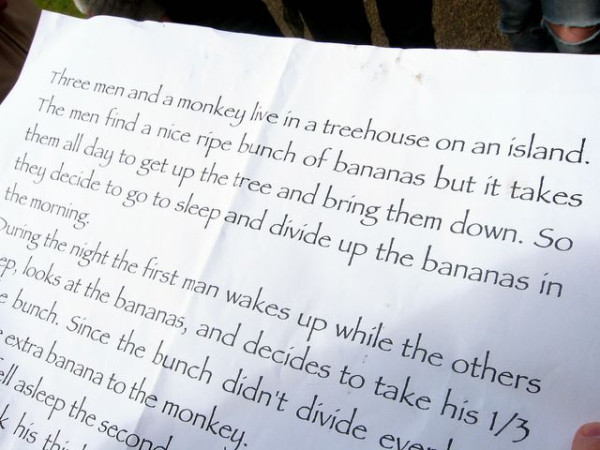 Three men and a monkey live in a treehouse on an island.
The men find a nice ripe bunch of bananas but it takes
them all day to get up the tree and bring them down. So
they decide to go to sleep and divide up the bananas in
the morning.
During the night the first man wakes up while the others
looks at the bananas, and decides to take his 1/3
bunch. Since the bunch didn't divide
extra banana to the monkey.
asleep the second
his